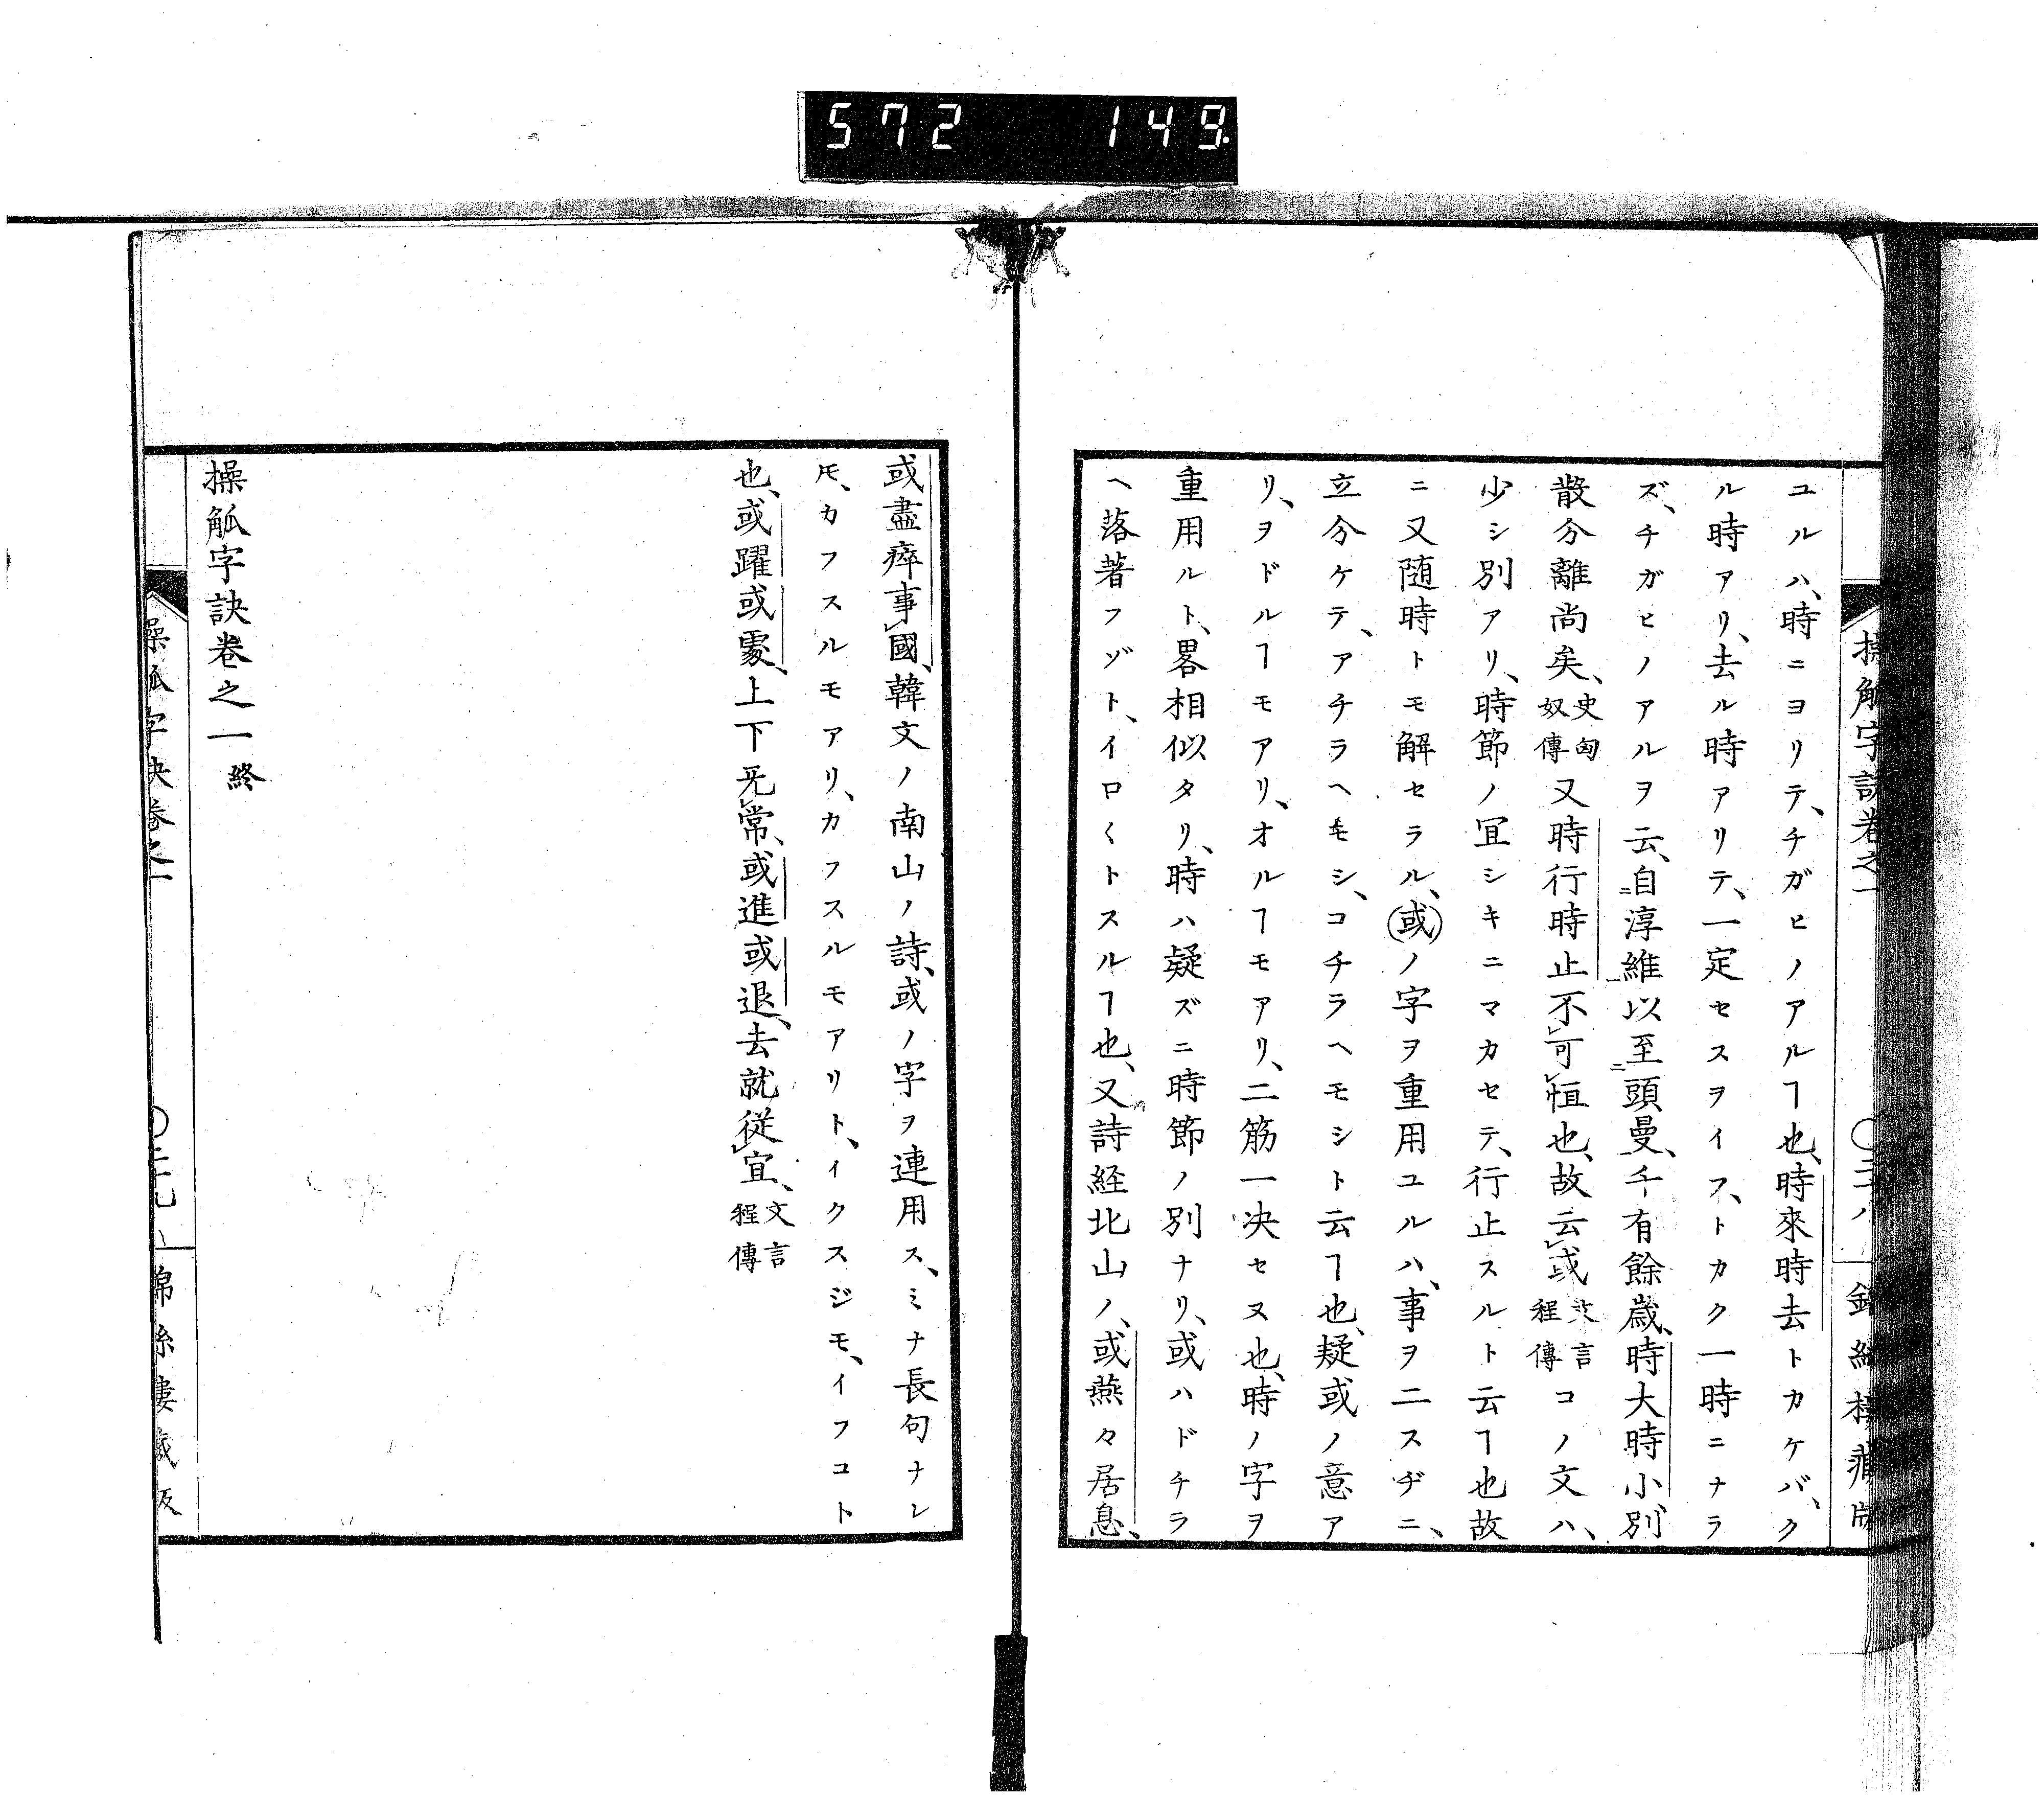 572 149
操觚字訣卷之一 〇二十八 錦絲樓藏版
ユルハ、時ニヨリテ、チガヒノアルヿ也、時來時去トカケバ、ク
ル時アリ、去ル時アリテ、一定セスヲイフ、トカク一時ニナラ
ズ、チガヒノアルヲ云、自淳維以至頭曼、千有餘歲、時大時小別
散分離尚矣、史匈奴傳又時行時止不可恒也、故云或文言程傳コノ文ハ、
少シ別アリ、時節ノ冝シキニマカセテ、行止スルト云ヿ也故
ニ又随時トモ解セラル、或ノ字ヲ重用ユルハ、事ヲ二スヂニ、
立分ケテ、アチラヘモシ、コチラヘモシト云ヿ也、疑或ノ意ア
リ、ヲドルヿモアリ、オルヿモアリ、二筋一决セヌ也、時ノ字ヲ
重用ルト、畧相似タリ、時ハ疑ズニ時節ノ別ナリ、或ハドチラ
ヘ落著フゾト、イロ〱トスルヿ也、又詩経北山ノ、或燕々居息、
或盡瘁事國、韓文ノ南山ノ詩、或ノ字ヲ連用ス、ミナ長句ナレ
𪜈、カフスルモアリ、カフスルモアリト、イクスジモ、イフコト
也、或躍或處、上下旡常、或進或退、去就従宜、文言程傳
操觚字訣卷之一終
操觚字訣卷之一 〇二十九 錦絲樓藏版